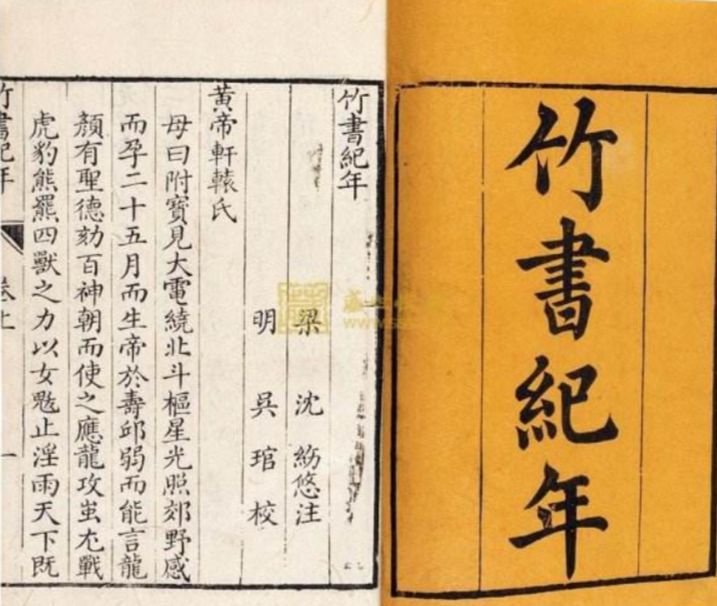 竹書紀年
竹書紀年
梁 沈 紛悠注
明 吳 琯 校
黃帝軒轅氏
母曰附寶見大電繞北斗樞星光照郊野感
而孕二十五月而生帝於壽邱弱而能言龍
顏有聖德劾百神朝而使之應龍攻蚩尤戰
虎豹熊羆四獸之力以女魃止淫雨天下既
竹書紀年 卷上 一